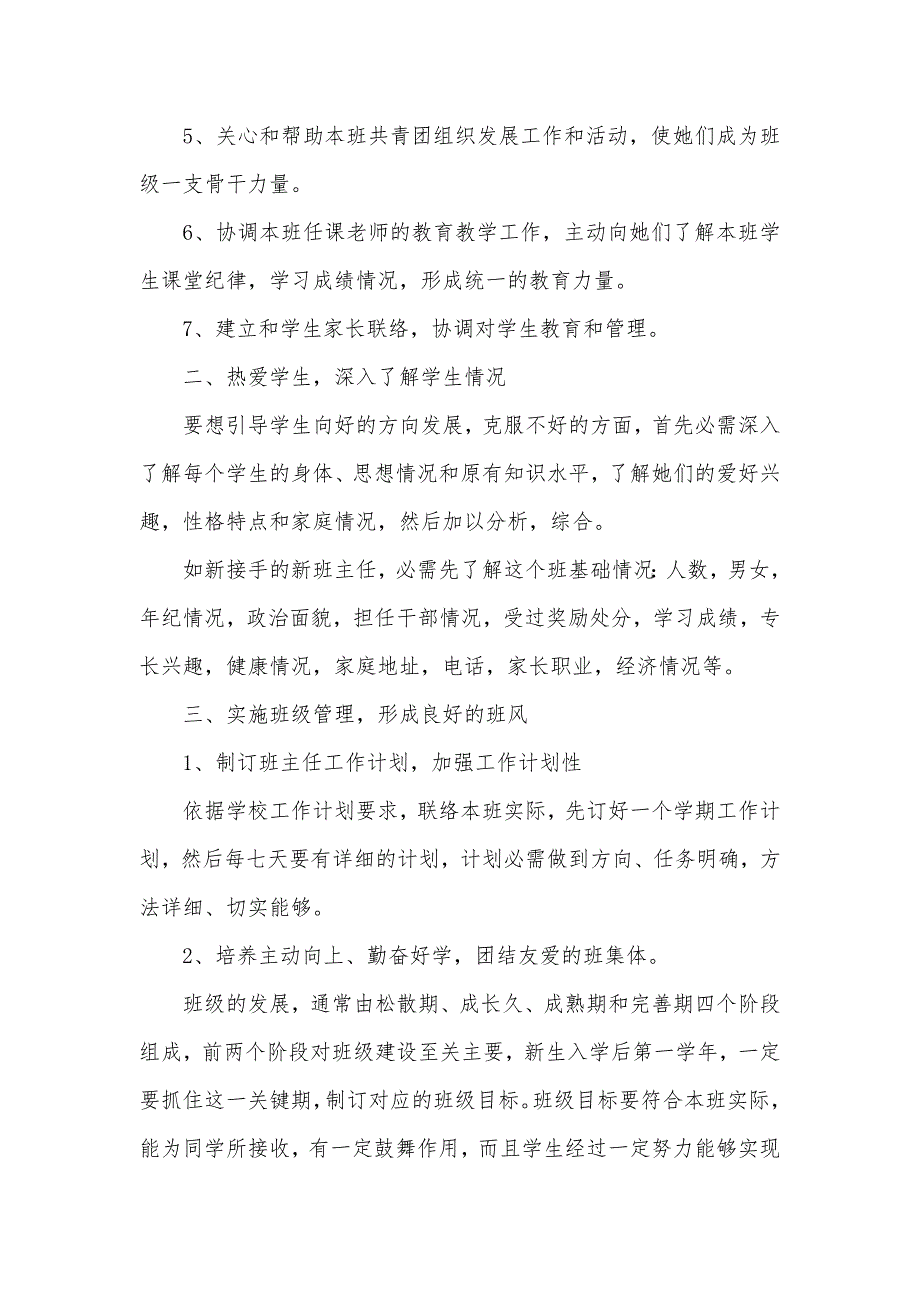 5、关心和帮助本班共青团组织发展工作和活动，使她们成为班
级一支骨干力量。
6、协调本班任课老师的教育教学工作，主动向她们了解本班学
生课堂纪律，学习成绩情况，形成统一的教育力量。
7、建立和学生家长联络，协调对学生教育和管理。
二、热爱学生，深入了解学生情况
要想引导学生向好的方向发展，克服不好的方面，首先必需深入
了解每个学生的身体、思想情况和原有知识水平，了解她们的爱好兴
趣，性格特点和家庭情况，然后加以分析，综合。
如新接手的新班主任，必需先了解这个班基础情况：人数，男女，
年纪情况，政治面貌，担任干部情况，受过奖励处分，学习成绩，专
长兴趣，健康情况，家庭地址，电话，家长职业，经济情况等。
三、实施班级管理，形成良好的班风
1、制订班主任工作计划，加强工作计划性
依据学校工作计划要求，联络本班实际，先订好一个学期工作计
划，然后每七天要有详细的计划，计划必需做到方向、任务明确，方
法详细、切实能够。
2、培养主动向上、勤奋好学，团结友爱的班集体。
班级的发展，通常由松散期、成长久、成熟期和完善期四个阶段
组成，前两个阶段对班级建设至关主要，新生入学后第一学年，一定
要抓住这一关键期，制订对应的班级目标。班级目标要符合本班实际，
能为同学所接收，有一定鼓舞作用，而且学生经过一定努力能够实现